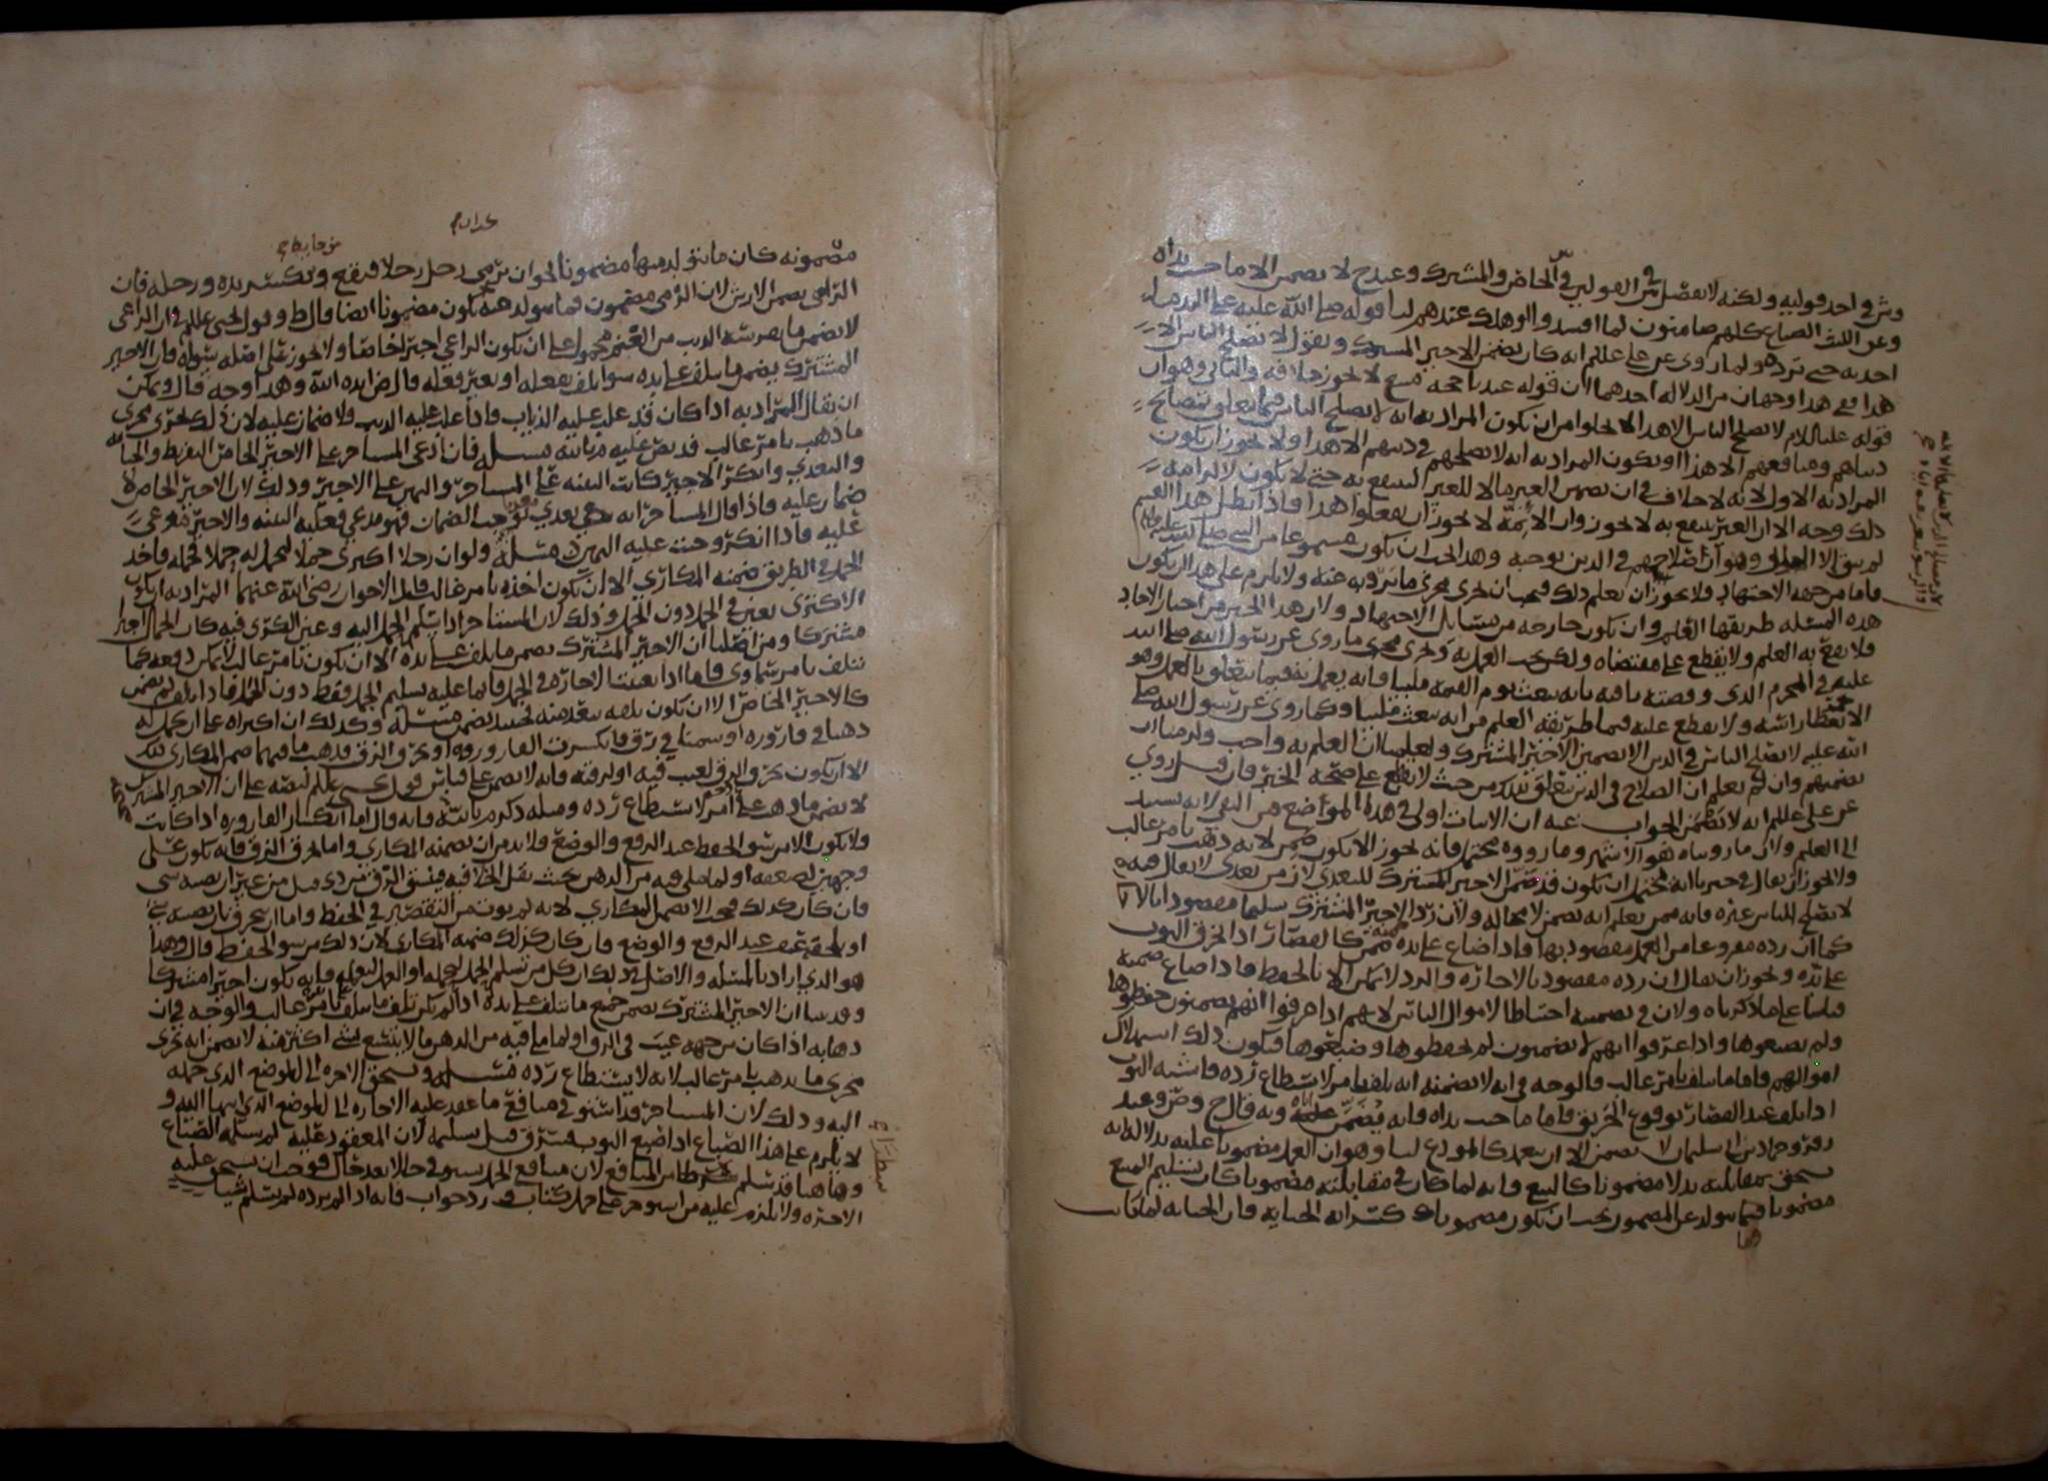 وش في احد قوليه ولكنه لا يفصل ش في القولين في الخاص والمشترك وعند ح لا يضمن الا ما جنت يداه
وعن الليث الصناع كلهم ضامنون لما افسدوا او هلك عندهم لنا قوله صلى الله عليه على اليد ما
اخذت حتى ترده ولما روي عن علي عللم انه كان يضمن الاجير المشترك ويقول لا يصلح الناس الا
هذا وفي هذا وجهان من الدلالة احدهما ان قوله عندنا حجة لا يجوز خلافه والثاني وهو ان
قوله عليه السلام لا يصلح الناس الا هذا لا يخلوا من ان يكون المراد به انه لا يصلح الناس فيما يتعلق بمصالح
دنياهم ومنافعهم الا هذا او يكون المراد به انه لا يصلحهم في دينهم الا هذا ولا يجوز ان يكون
المراد به الاول لانه لا خلاف في ان تضمين الغير مالا للغير لينتفع به حتى لا يكون لالزامه
ذلك وجه الا ان الغير ينتفع به لا يجوز وان الائمة لا يجوز ان يفعلوا هذا فاذا بطل هذا القسم
لم يبق الا الثاني وهو ان صلاحهم في الدين يوجبه وهذا يجب ان يكون مسموعا من النبي صلى الله عليه
فاما من جهة الاجتهاد فلا يجوز ان يعلم ذلك فيجب ان يجري مجرى ما يرويه عنه ولا يلزم على هذا ان يكون
هذه المسئلة طريقها العلم وان تكون خارجة من مسائل الاجتهاد ولان هذا الخبر من اخبار الاحاد
فلا يقع به العلم ولا يقطع على مقتضاه ولكن يجب العمل به ويجري مجرى ما روي عن رسول الله صلى الله
عليه في المحرم الذي وقصته ناقته بانه يبعث يوم القيمة ملبيا فانه يعمل به فيما يتعلق بالعمل وهو
الا يغطى راسه ولا يقطع عليه فيما طريقه العلم من انه يبعث ملبيا وكما روي عن رسول الله صلى
الله عليه لا يصلح الناس في الدين الا تضمين الاجير المشترك
تضمينهم وان لم نعلم ان الصلاح في الدين يتعلق بذلك من حيث لا نقطع على صحة الخبر فان قيل روي
عن علي عللم انه لا يضمن الجواب عنه ان الاثبات اولى في هذه المواضع من النفي لانه يستند
الى العلم ولان ما رويناه هو الاشهر وما رووه محتمل فانه يجوز الا يكون ضمن لانه ذهب بامر غالب
ولا يجوز ان يقال في خبرنا انه يحتمل ان يكون قد ضمن الاجير المشترك للتعدي لان من تعدى لا يقال فيه
لا يصلح الناس غيره فانه ممن يعلم انه يضمن لا محالة ولان رد الاجير المشترك سليما مقصود
كما ان رده مفروغا من العمل مقصود بها فاذا ضاع على يده ضمن كالقصار اذا خرق الثوب
على يده ويجوز ان يقال ان رده مقصود بالاجارة والرد لا يمكن الا بالحفظ فاذا ضاع ضمنه
قياسا على ما ذكرناه ولان في تضمينه احتياطا لاموال الناس لانهم اذا عرفوا انهم يضمنون حفظوها
ولم يضيعوها واذا عرفوا انهم لا يضمنون لم يحفظوها وضيعوها فيكون ذلك استهلاك
اموالهم فاما ما تلف بامر غالب فالوجه في انه لا يضمنه انه تلف بامر لا يستطاع رده فاشبه الثوب
اذا تلف عند القصار بوقوع الحريق فاما ما جنت يداه فانه يضمن وبه قال ح وص وعند
زفر وحماد بن ابي سليمان لا يضمن الا ان يتعمد كالمودع لنا وهو ان العمل مضمون عليه بدلالة انه
يستحق بمقابلته بدلا مضمونا كالبيع فانه لما كان في مقابلته مضمونا كان تسليم المبيع
مضمونا فيما يتولد عن المضمون يجب ان يكون مضمونا كسراية الجناية فان الجناية لما كانت
مضمونة كان ما يتولد منها مضمونا نحو ان يرمي رجل رجلا فيقع وتكسر يده ورجله فان
الرامي يضمن الارش لان الرمي مضمون فما يتولد عنه يكون مضمونا ايضا قال ط وقول يحيى عللم في ان الراعي
لا يضمن ما يفرسه الذيب من الغنم محمول على ان يكون الراعي اجيرا خاصا ولا يجوز على اصله سواه فان الاجير
المشترك يضمن ما تلف على يده سوا تلف بفعله او بغير فعله قال ض ايده الله وهذا اوجه قال ويمكن
ان يقال المراد به اذا كان قد غلب عليه الذياب واذا غلب عليه الذيب فلا ضمان عليه لان ذلك يجري مجرى
ما ذهب بامر غالب قد نص عليه م بالله مسئلة فان ادعى المستاجر على الاجير الخاص التفريط والخيانة
والتعدي وانكر الاجير كانت البينة على المستاجر واليمين على الاجير وذلك لان الاجير الخاص لا
ضمان عليه فاذا قال المستاجر انه تعدى يوجب الضمان فهو مدعي فعليه البينة والاجير مدعى
عليه فاذا انكر وجبت عليه اليمين مسئلة ولو ان رجلا اكترى جملا ليحمل له حملا فحمله فاخذ
الحمل في الطريق ضمنه المكاري الا ان يكون اخذه بامر غالب قال الاخوان رضي الله عنهما المراد به ان يكون
الاكترى بعينه في الحمل دون الجمل وذلك لان المستاجر اذا سلم الحمل اليه وعين الكرى فيه كان الحمال اجيرا
مشتركا ومن اصلنا ان الاجير المشترك يضمن ما تلف على يده الا ان يكون بامر غالب لا يمكن دفعه كما
يتلف بامر سماوي فاما اذا تعينت الاجارة في الجمل فانما عليه تسليم الجمل فقط دون الحمل فاذا تلف لم يضمن
كالاجير الخاص الا ان يكون تلفه بتعد منه فحينئذ يضمن مسئلة وكذلك ان اكتراه على ان يحمل له
دهنا في قارورة او سمنا في زق فانكسرت القارورة او تخرق الزق فذهب ما فيهما ضمن المكاري ذلك
الا ان يكون تخرق الزق لعيب فيه او لرقته فانه لا يضمن على قياس قول يحيى عللم لنصه على ان الاجير المشترك
لا يضمن ما ذهب على امر لا يستطاع رده ومثله ذكر م بالله فانه قال اما انكسار القارورة اذا كانت
ولا يكون الا من سو الحفظ عند الرفع والوضع فلا بد من ان يضمنه المكاري واما خرق الزق فانه يكون على
وجهين لضعفه او لما ملي فيه من الدهن بحيث نقل الخلاف فيه فينشق الزق
فان كان كذلك فيجب الا يضمن المكاري لانه لم يوت من التقصير في الحفظ واما ان يخرق بان يصيبه شي
او يلحقه عنف عند الرفع والوضع فان كان كذلك ضمنه المكاري لان ذلك من سو الحفظ قال وهذا
هو الذي اراد بالمسئلة والاصل في ذلك ان كل من تسلم الحمل ليحمله او العمل ليعمله فانه يكون اجيرا مشتركا
وقد بينا ان الاجير المشترك يضمن جميع ما يتلف على يده اذا لم يكن تلف ما تلف بامر غالب والوجه في ان
ذهابه اذا كان من جهة عيب في الزق او لما ملي فيه من الدهن ما لا يتسع لشي اكثر منه لا يضمن انه يجري
مجرى ما يذهب بامر غالب لانه لا يستطاع رده مسئلة ويستحق الاجرة الى الموضع الذي حمله
اليه وذلك لان المستاجر قد استوفى منافع ما عقد عليه الاجارة الى الموضع الذي انتهى اليه و
لا يلزم على هذا الصناع اذا ضيع الثوب فسرق قبل تسليمه لان المعقود عليه لم يسلمه الصناع
وها هنا قد تسلم شرطا من المنافع لان منافع الحمل يستوفى حالا بعد حال فوجب ان يستحق عليه
الاجرة ولا يلزم عليه من استوجر على حمل كتاب ورد جواب فانه اذا لم يرده لم يسلم شيا